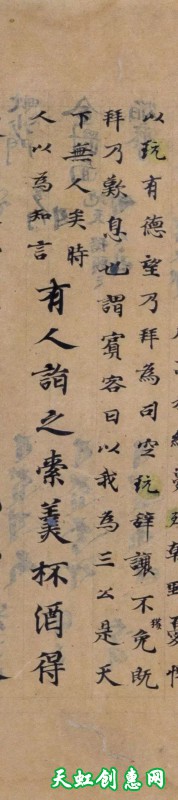 以玩有德望乃拜為司空玩辭讓不免既
拜乃歎息也謂賓客曰以我為三公是天
下無人矣時
人以為知言
有人詣之索美杯酒得
天虹创惠网